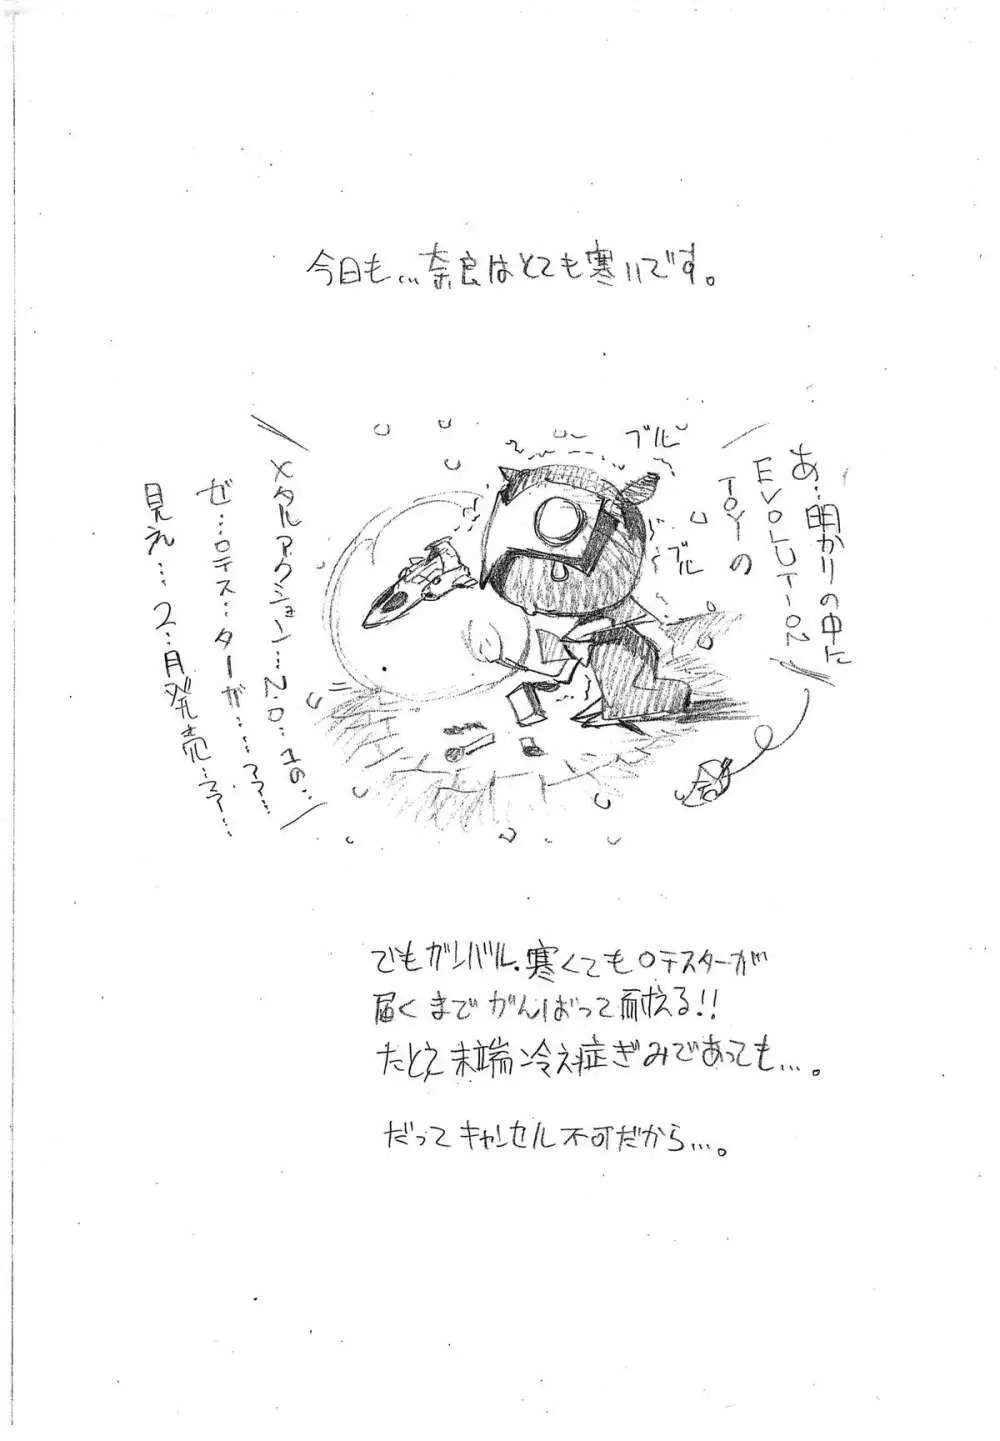 今日も…奈良はとても寒いです。
ブルー
ブルー
あ…明かりの中に
EVOLUTION
TOYの
メタルアクション…NO…1の…
ゼ…ロテス…ターが…ァァ…
見え…2…月発売…ァァ…
でもガンバル、寒くても○テスターが
届くまでがんばって耐える!!
たとえ末端冷え症ぎみであっても…。
だってキャンセル不可だから…。